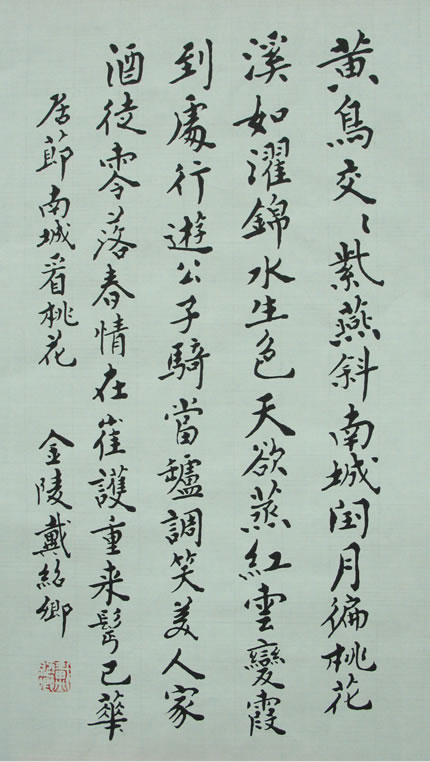 黄鳥交〻紫燕斜南城闰月徧桃花
溪如濯錦水生色天欲蒸紅雲變霞
到處行遊公子騎當罏調笑美人家
酒徒零落春情在崔護重来鬂已華
居節南城看桃花 金陵戴紹卿